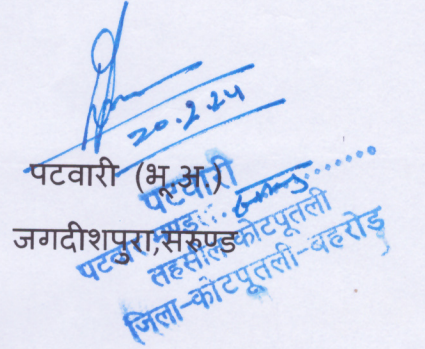 20.2.24
पटवारी (भू.अ.)
जगदीशपुरा,सरुण्ड
पटवारी
पटवार मण्डल......
तहसील-कोटपूतली
जिला-कोटपूतली-बहरोड़